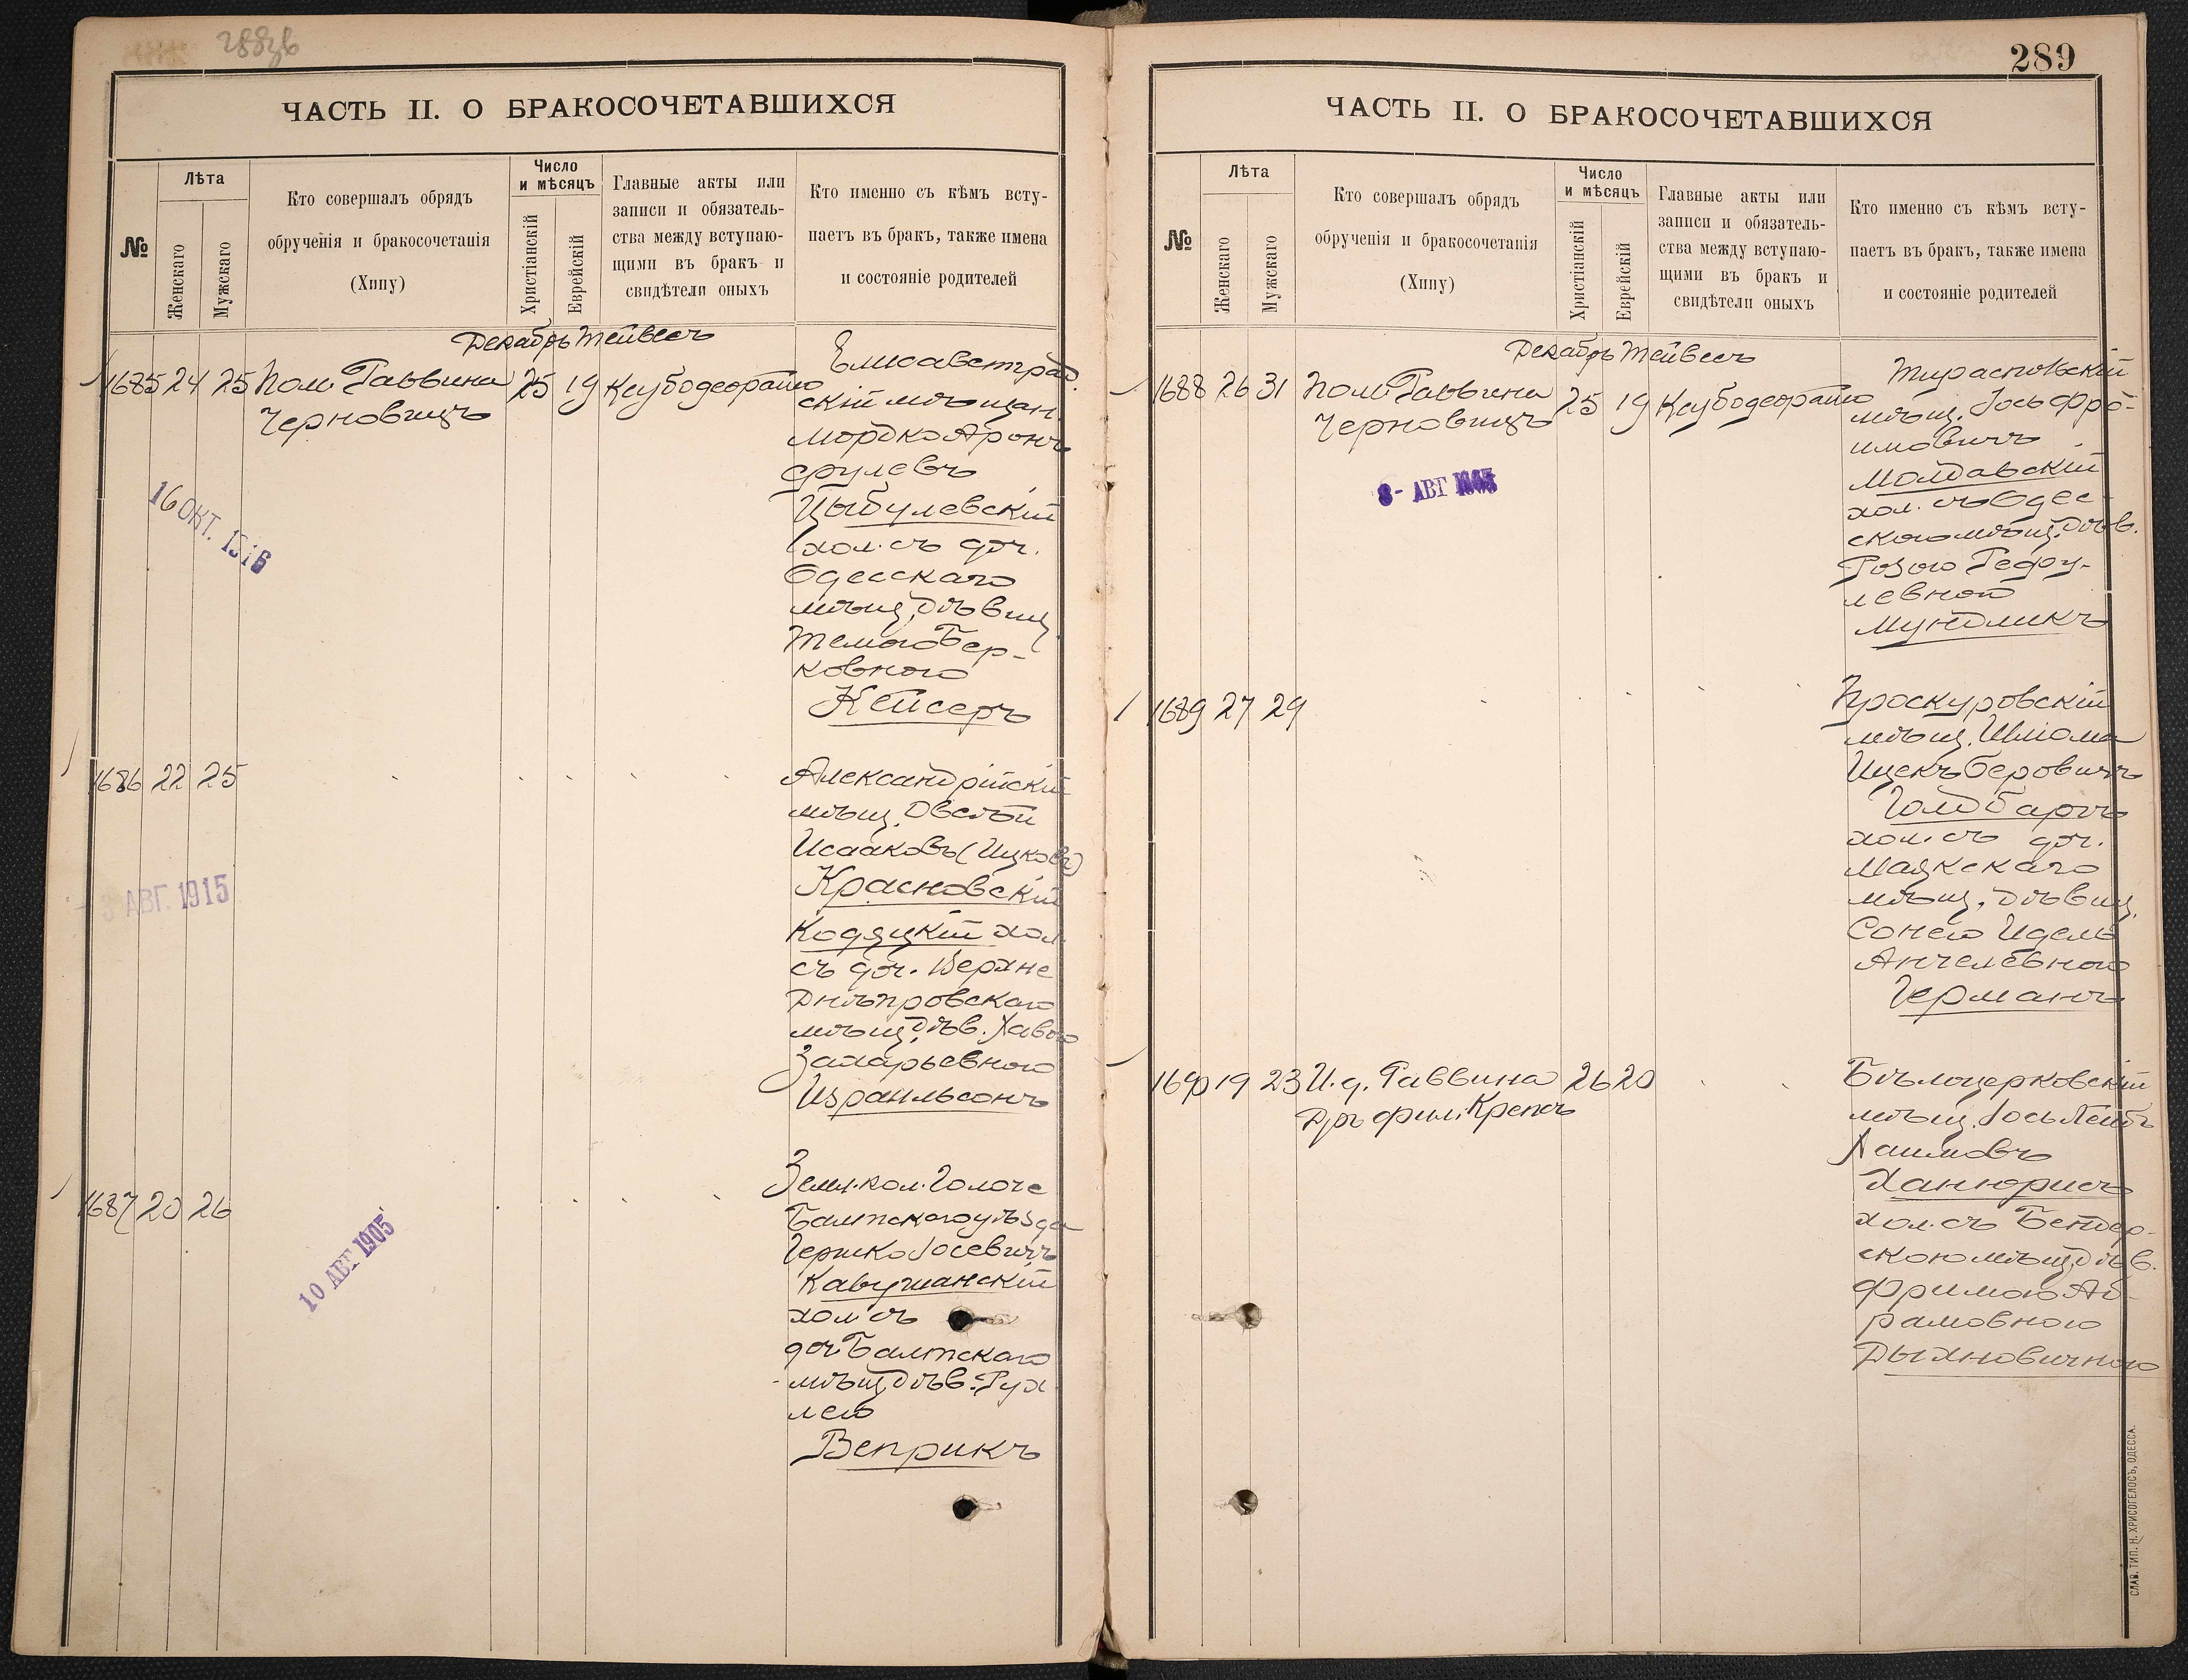 288об
ЧАСТЬ II. О БРАКОСОЧЕТАВШИХСЯ
№
Лѣта
Женскаго
Мужскаго
Кто совершалъ обрядъ
обрученія и бракосочетанія
(Хипу)
Число
и мѣсяцъ
Христіанскій
Еврейскій
Главные акты или
записи и обязатель-
ства между вступаю-
щими въ бракъ и
свидѣтели оныхъ
Кто именно съ кѣмъ всту-
паетъ въ бракъ, также имена
и состояніе родителей
Декабрь Тейвесъ
1685 24 25 Пом. Раввина 25 19
Черновицъ
Елисаветград
скій мѣщан.
Мордко Аронъ
Срулевъ
Цыбулевскій
хол. съ доч.
Одесскаго
мѣщ. дѣвиц.
Темою Бер-
ковною
Кейсеръ
16 ОКТ. 1916
1686 22 25
Александрійскій
мѣщ. Овсѣй
Исааковъ (Ицковъ)
Красновскій
Кодяцкій хол.
съ доч. Верхне
Днѣпровскаго
мѣщ. дѣв. Хавою
Захарьевною
Израильсонъ
3 АВГ. 1915
1687 20 26
Земл. кол. Голоче
Балтскаго уѣзда
Гершко Іосевичъ
Кавушанскій
хол. съ
доч. Балтскаго
мѣщ. дѣв. Рух
лею
Веприкъ
10 АВГ 1905
289
ЧАСТЬ II. О БРАКОСОЧЕТАВШИХСЯ
№
Лѣта
Женскаго
Мужскаго
Кто совершалъ обрядъ
обрученія и бракосочетанія
(Хипу)
Число
и мѣсяцъ
Христіанскій
Еврейскій
Главные акты или
записи и обязатель-
ства между вступаю-
щими въ бракъ и
свидѣтели оныхъ
Кто именно съ кѣмъ всту-
паетъ въ бракъ, также имена
и состояніе родителей
Декабрь Тейвесъ
1688 26 31 Пом. Раввина 25 19
Черновицъ
Тираспольскій
мѣщ. Іось Фро-
имовичъ
Молдавскій
хол. съ Одес-
скою мѣщ. дѣв.
Розою Гедау-
левной
Мундликъ
8 - АВГ
1689 27 29
Проскуровскій
мѣщ. Шліома
Ицекъ Беровичъ
Голдбартъ
хол. съ доч.
Маякскаго
мѣщ. дѣвиц.
Сонею Идель
Анчелевною
Германъ
1690 19 23 И. д. Раввина 26 20
Дръ фил. Крепсъ
Бѣлоцерковскій
мѣщ. Іось Лейбъ
Хаимовъ
Ханюрисъ
хол. съ Бендер-
скою мѣщ. дѣв.
Фримою Аб-
рамовною
Дыхновичною
СЛАВ. ТИП. Н. ХРИСОГЕЛОСЪ, ОДЕССА.